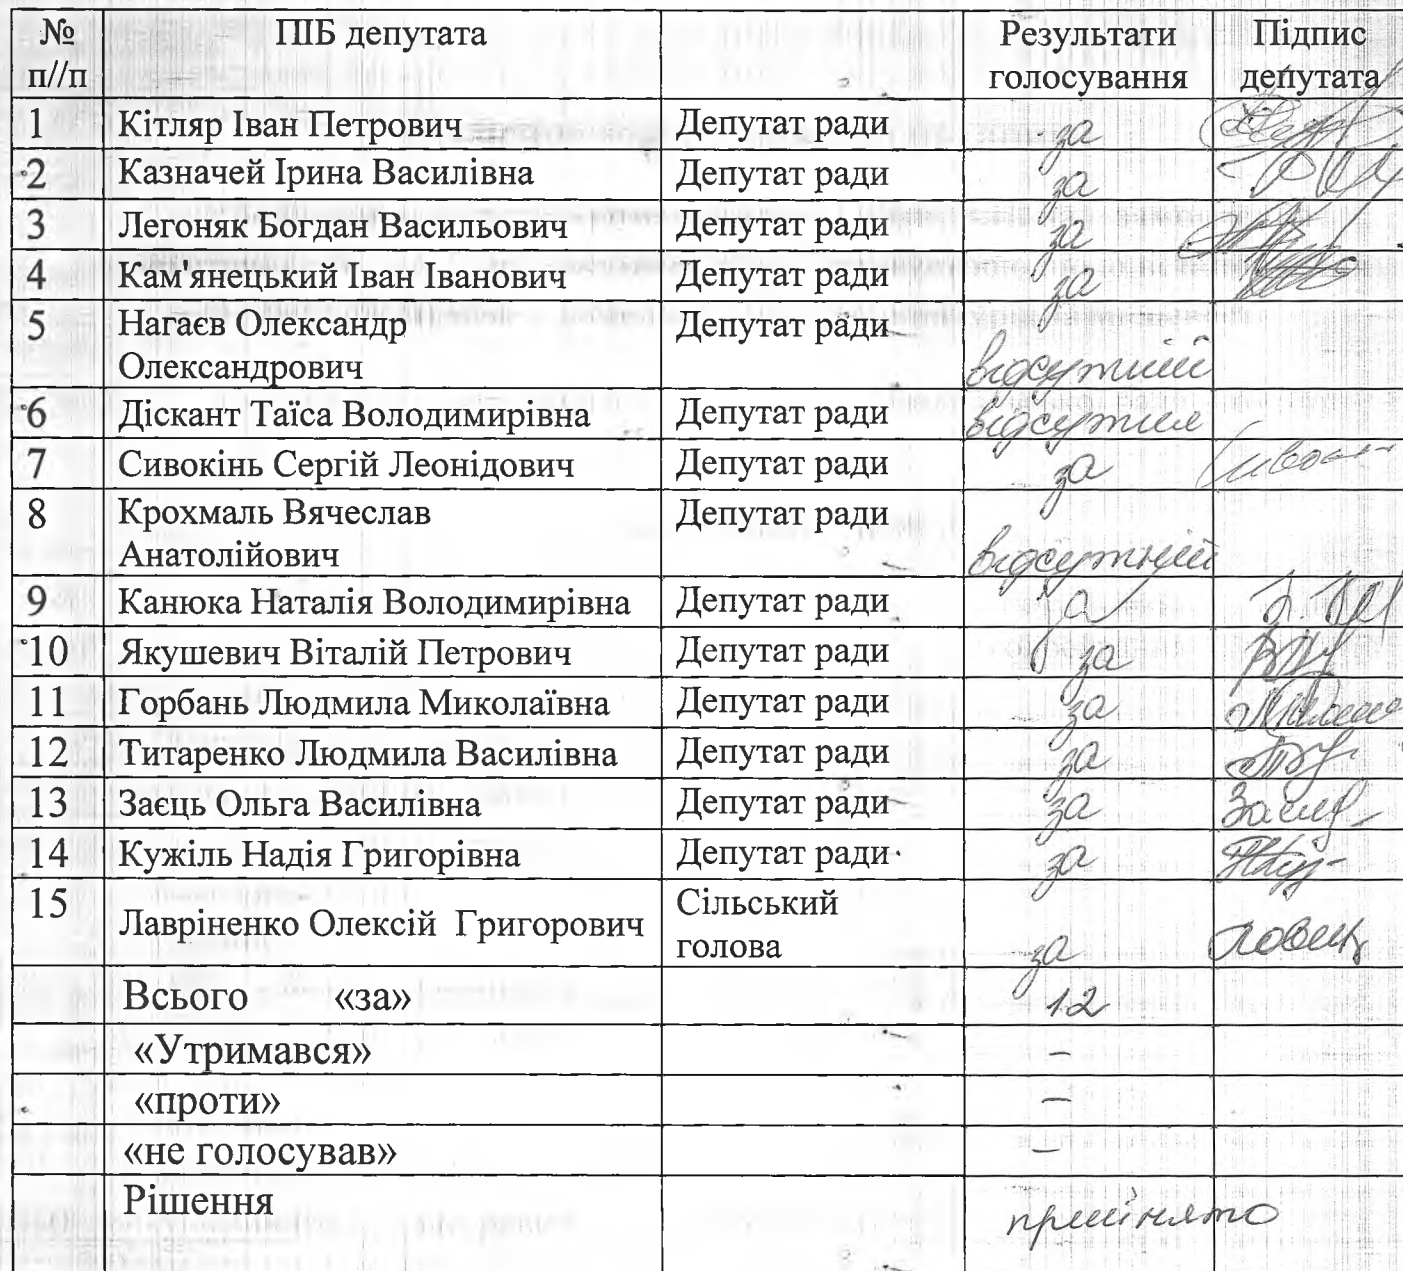 № п//п ПІБ депутата Результати голосування Підпис депутата
1 Кітляр Іван Петрович Депутат ради за
2 Казначей Ірина Василівна Депутат ради за
3 Легоняк Богдан Васильович Депутат ради за
4 Кам'янецький Іван Іванович Депутат ради за
5 Нагаєв Олександр Олександрович Депутат ради відсутній
6 Діскант Таїса Володимирівна Депутат ради відсутня
7 Сивокінь Сергій Леонідович Депутат ради за
8 Крохмаль Вячеслав Анатолійович Депутат ради відсутній
9 Канюка Наталія Володимирівна Депутат ради за
10 Якушевич Віталій Петрович Депутат ради за
11 Горбань Людмила Миколаївна Депутат ради за
12 Титаренко Людмила Василівна Депутат ради за
13 Заєць Ольга Василівна Депутат ради за
14 Кужіль Надія Григорівна Депутат ради за
15 Лавріненко Олексій Григорович Сільський голова за
Всього «за» 12
«Утримався» –
«проти» –
«не голосував» –
Рішення прийнято